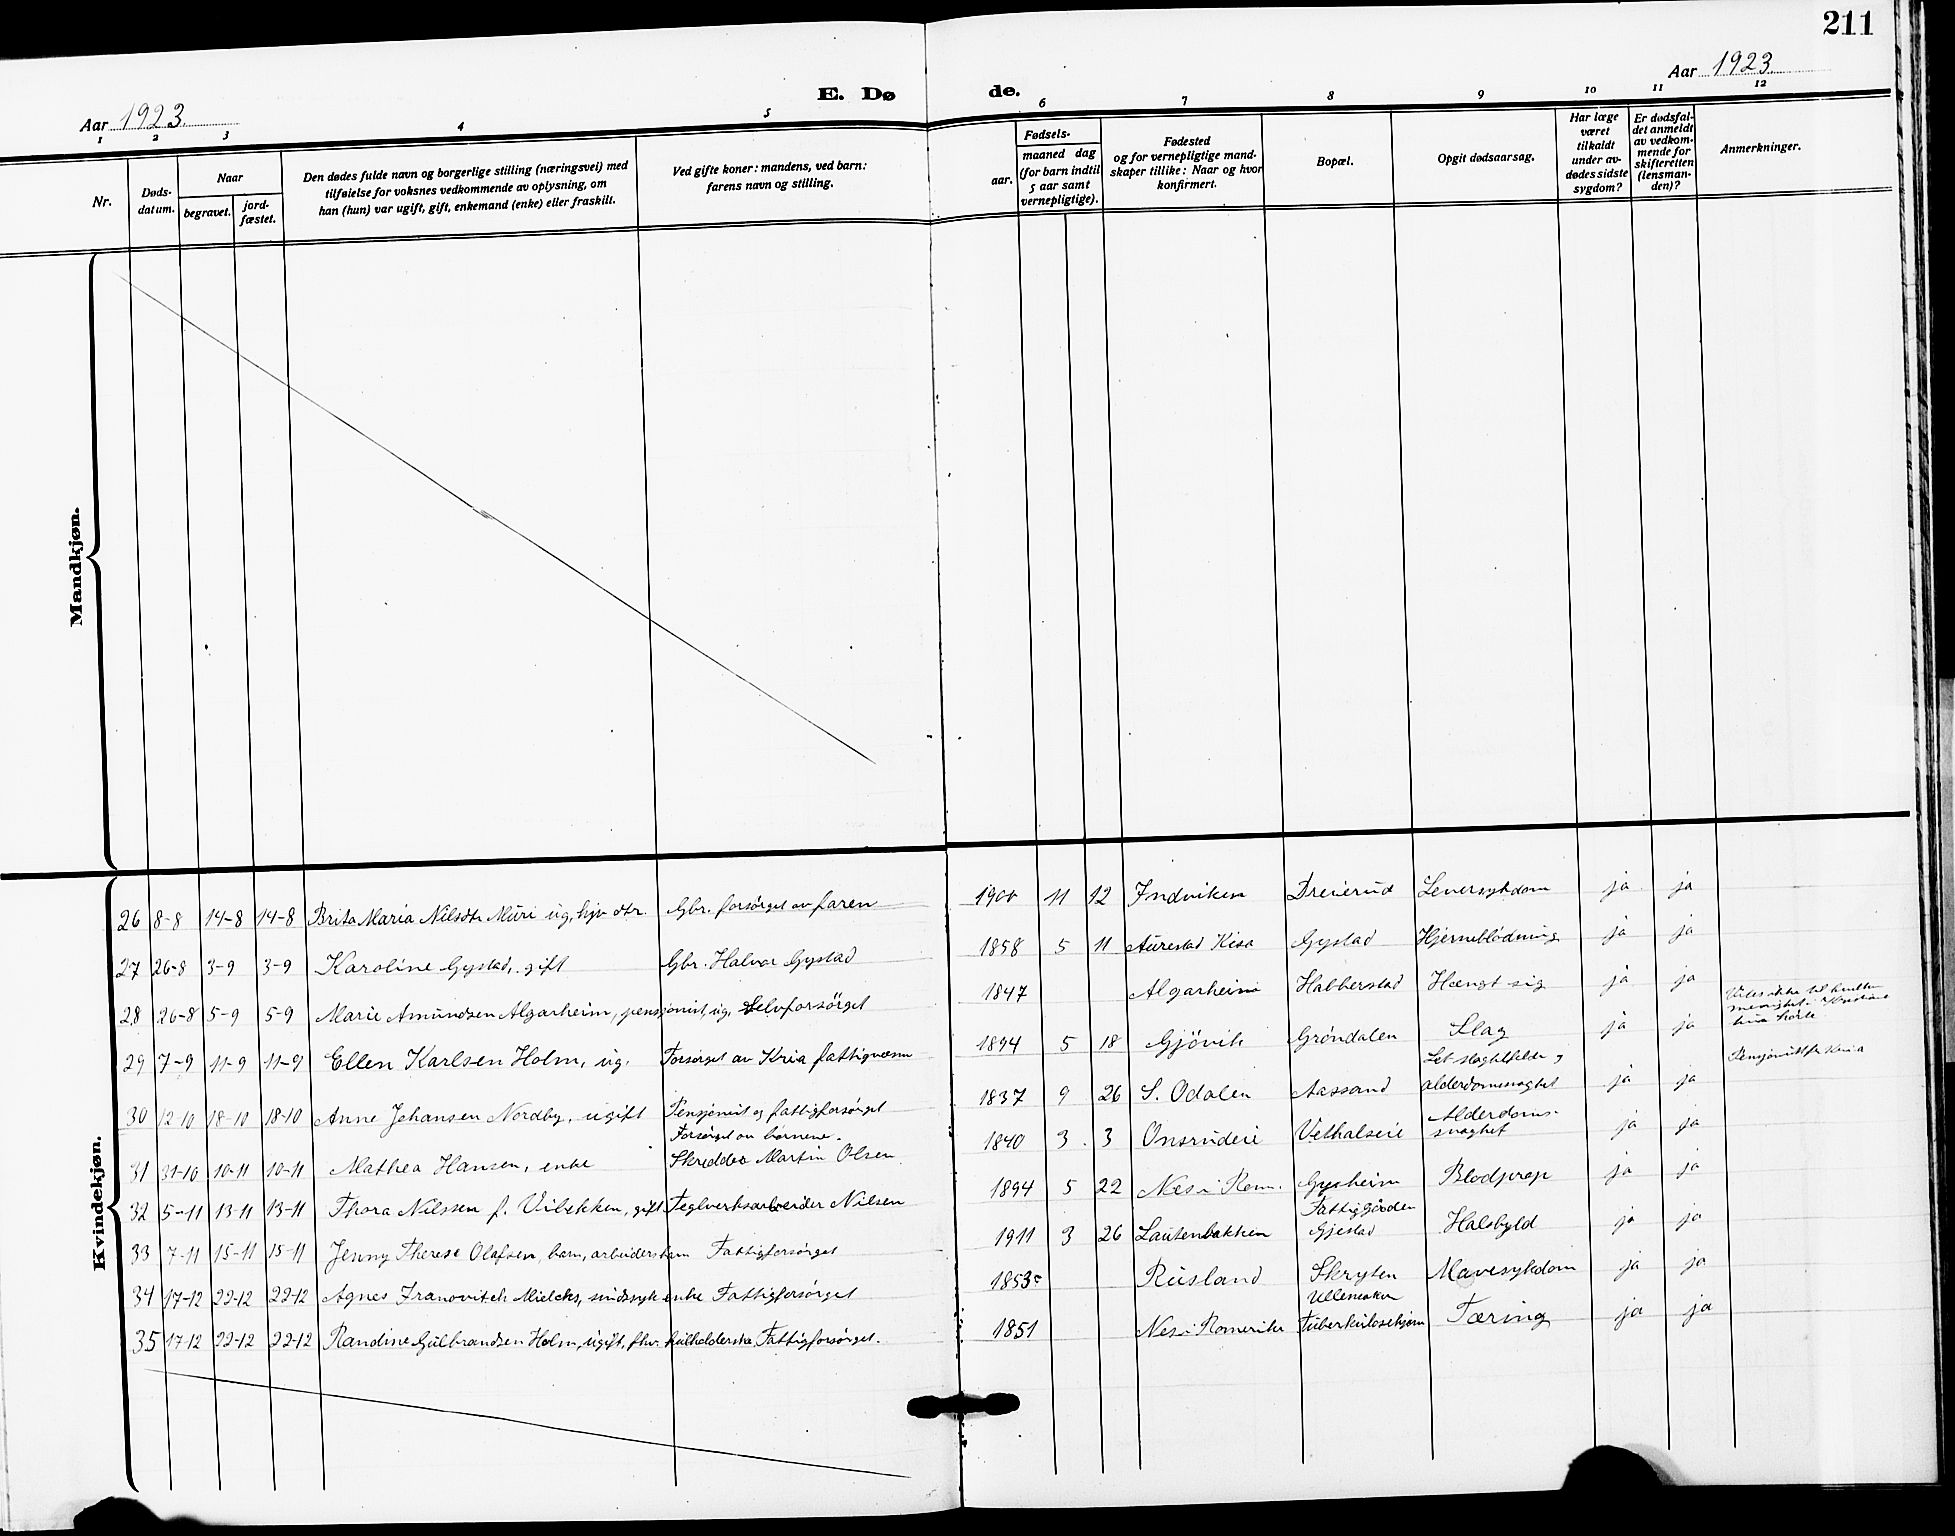 211
Aar 1923.
E. Dø
de.
Aar 1923.
1 2 3 4 5 6 7 8 9 10 11 12
Nr.
Døds-
datum.
Naar
begravet.
jord-
fæstet.
Den dødes fulde navn og borgerlige stilling (næringsvei) med
tilføielse for voksnes vedkommende av oplysning, om
han (hun) var ugift, gift, enkemand (enke) eller fraskilt.
Ved gifte koner: mandens, ved barn:
farens navn og stilling.
Fødsels-
aar.
maaned dag
(for barn indtil
5 aar samt
vernepligtige).
Fødested
og for vernepligtige mand-
skaper tillike: Naar og hvor
konfirmert.
Bopæl.
Opgit dødsaarsag.
Har læge
været
tilkaldt
under av-
dødes sidste
sygdom?
Er dødsfal-
det anmeldt
av vedkom-
mende for
skifteretten
(lensman-
den)?
Anmerkninger.
Mandkjøn.
Kvindekjøn.
26 8-8 14-8 14-8 Brita Maria Nilsdtr Muri ug. hjv dtr. Gbr. forsörget av faren 1900 11 12 Indviken Dreierud Leversykdom ja ja
27 26-8 3-9 3-9 Karoline Gystad, gift Gbr. Halvor Gystad 1858 5 11 Aurestad Kisa Gystad Hjerneblödning ja ja
28 26-8 5-9 5-9 Marie Amundsen Algarheim, pensjonist, ug. Selvforsörget 1847 Algarheim Habberstad Hængt sig ja ja
29 7-9 11-9 11-9 Ellen Karlsen Holm, ug. Forsörget av Kria fattigvæsen 1894 5 18 Gjövik Gröndalen Slag ja ja
30 12-10 18-10 18-10 Anne Johansen Nordby, ugift Pensjonist og fattigforsörget 1837 9 26 S. Odalen Aassand Let slagtilfelde og
alderdomssvaghet ja ja
31 31-10 10-11 10-11 Mathea Hansen, enke Forsörget av börnene. 1840 3 3 Onsrudeie Velhalseie Alderdoms-
svaghet ja ja
32 5-11 13-11 13-11 Thora Nilssen f. Vibekken, gift Skredder Martin Olsen
Teglverksarbeider Nilsen 1894 5 22 Nes i Rom. Gysheim Blodprop ja ja
33 7-11 15-11 15-11 Jenny Therese Olafsen, barn, arbeidersbarn Fattigforsörget 1911 3 26 Lautenbakken Fattiggården
Gjestad Halsbyld ja ja
34 17-12 22-12 22-12 Agnes Franovitch Mielcks, sindssyk enke Fattigforsörget 1853 Rusland Skryten Mavesykdom ja ja
35 17-12 22-12 22-12 Randine Gulbrandsen Holm, ugift, fhv. husholderske Fattigforsörget. 1851 Nes i Romerike Ullensaker
Tuberkulosehjem Tæring ja ja